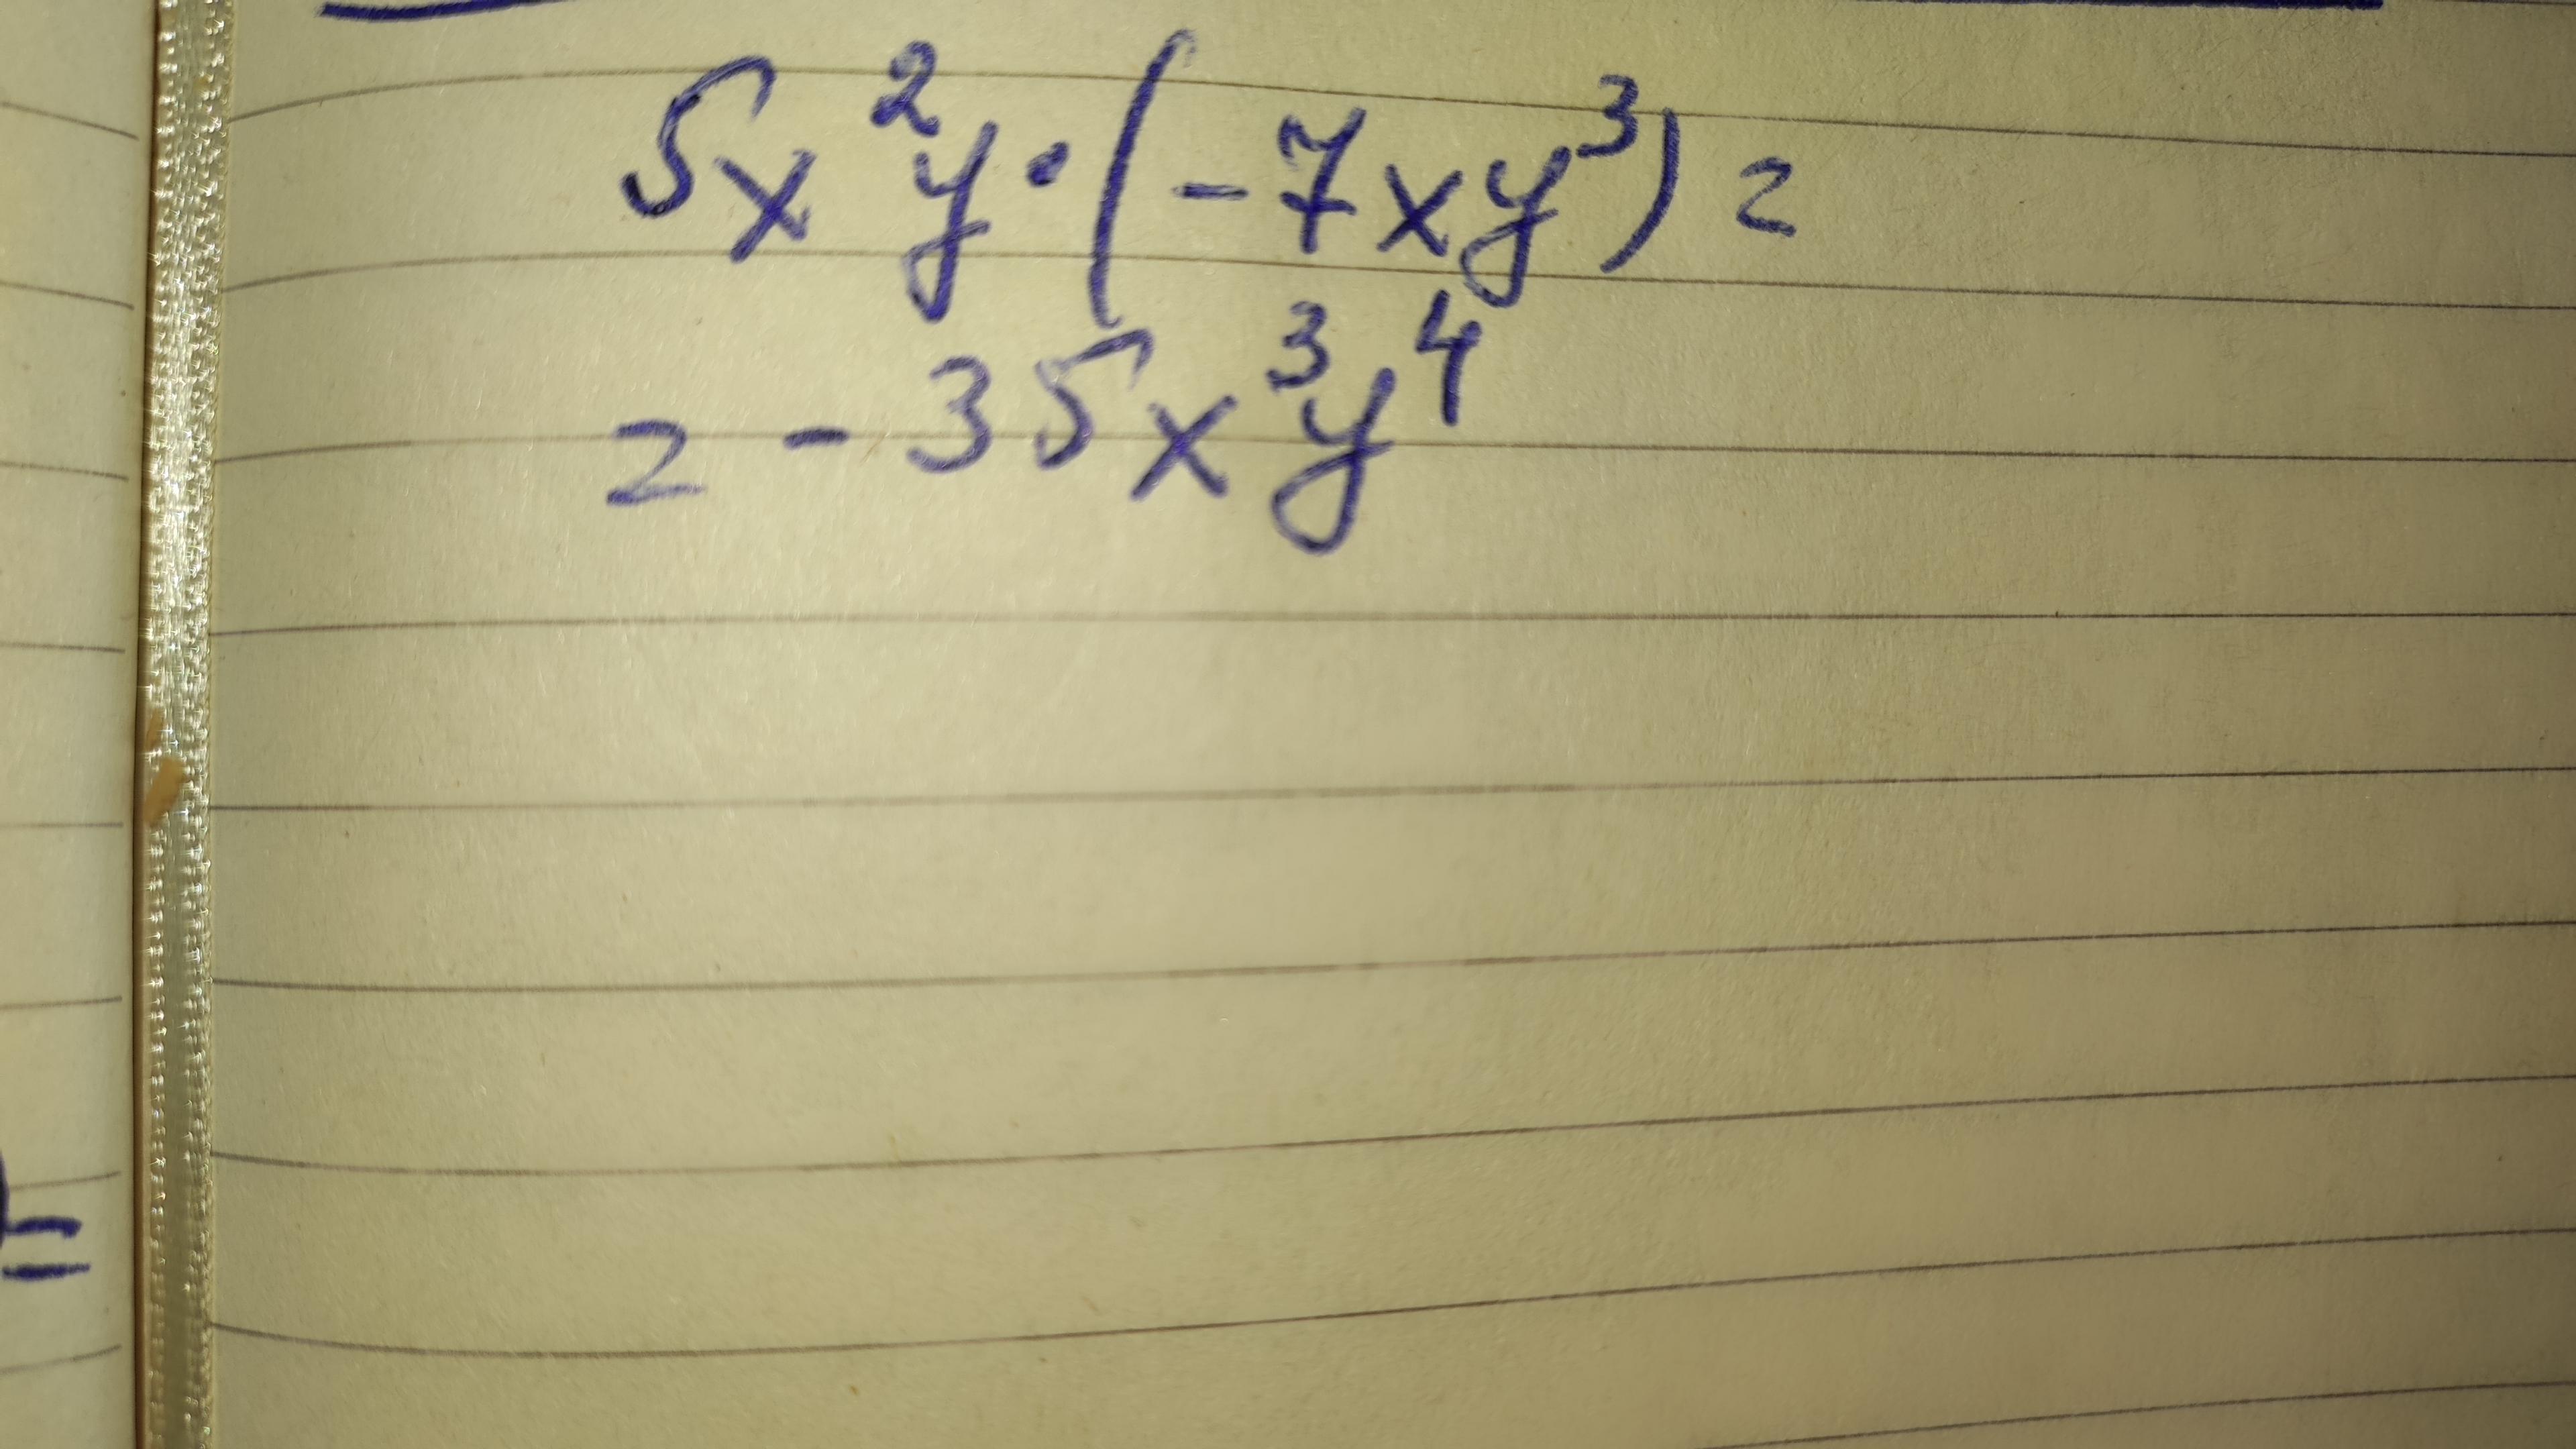 5x²y·(-7xy³)=
=-35x³y⁴
=